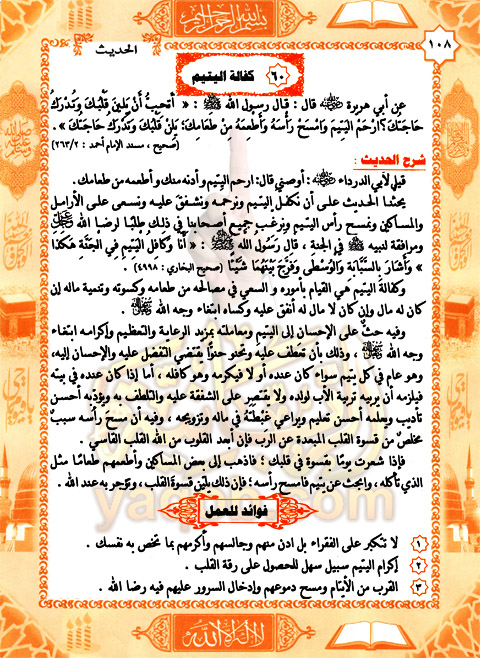 بسم الله الرحمن الرحيم
١٠٨
الحديث
٦٠ كفالة اليتيم
عن أبي هريرة ﷺ قال : قال رسول الله ﷺ : « أتُحِبُّ أَنْ يَلِينَ قَلْبُكَ وَتُدْرِكَ
حَاجَتَكَ ؟ ارْحَمِ الْيَتِيمَ وَامْسَحْ رَأْسَهُ وَأَطْعِمْهُ مِنْ طَعَامِكَ؛ يَلِنْ قَلْبُكَ وَتُدْرِكْ حَاجَتَكَ » .
[صحيح ، مسند الإمام أحمد : ٢٦٣/٢]
شرح الحديث :
قيل لأبي الدرداء : أوصني قال: ارحم اليتيم وأدنه منك وأطعمه من طعامك.
يحثنا الحديث على أن نكفل اليتيم ونرحمه ونشفق عليه ونسعى على الأرامل
والمساكين ونمسح رأس اليتيم ونرغب جميع أصحابنا في ذلك طلبًا لرضا الله
وموافقة لنبيه ﷺ في الجنة ، قال رَسُولُ الله ﷺ : « أَنَا وَكَافِلُ الْيَتِيمِ فِي الْجَنَّةِ هَكَذَا
» وَأَشَارَ بِالسَّبَّابَةِ وَالْوُسْطَى وَفَرَّجَ بَيْنَهُمَا شَيْئًا (صحيح البخاري : ٤٩٩٨) .
وكفالة اليتيم هي القيام بأموره و السعي في مصالحه من طعامه وكسوته وتنمية ماله إن
كان له مال وإن كان لا مال له أنفق عليه وكساه ابتغاء وجه الله .
وفيه حثٌّ على الإحسان إلى اليتيم ومعاملته بمزيد الرعاية والتعظيم وإكرامه ابتغاء
وجه الله ، وذلك بأن تعطف عليه وتحنو حنوًا يقتضي التفضل عليه والإحسان إليه،
وهو عام في كل يتيم سواء كان عنده أو لا فيكرمه وهو كافله ، أما إذا كان عنده في بيته
فيلزمه أن يربيه تربية الأب لولده ولا يقتصر على الشفقة عليه والتلطف به ويؤدِّبه أحسن
تأديب ويعلمه أحسن تعليم ويراعي غبطته في ماله وتزويجه ، وفيه أن مسحَ رأسه سببٌ
مخلصٌ من قسوة القلب المبعدة عن الرب فإن أبعد القلوب من الله القلب القاسي .
فإذا شعرت يومًا بقسوة في قلبك ؛ فاذهب إلى بعض المساكين وأطعمهم طعامًا مثل
الذي تأكله ، وابحث عن يتيم فامسح رأسه ؛ فإن ذلك يلين قسوة القلب ، وتؤجر به عند الله .
فوائد للعمل
١ لا تتكبر على الفقراء بل ادن منهم وجالسهم وأكرمهم بما تخص به نفسك .
٢ إكرام اليتيم سبيل سهل للحصول على رقة القلب .
٣ القرب من الأيتام ومسح دموعهم وإدخال السرور عليهم فيه رضا الله .
لا إله إلا الله